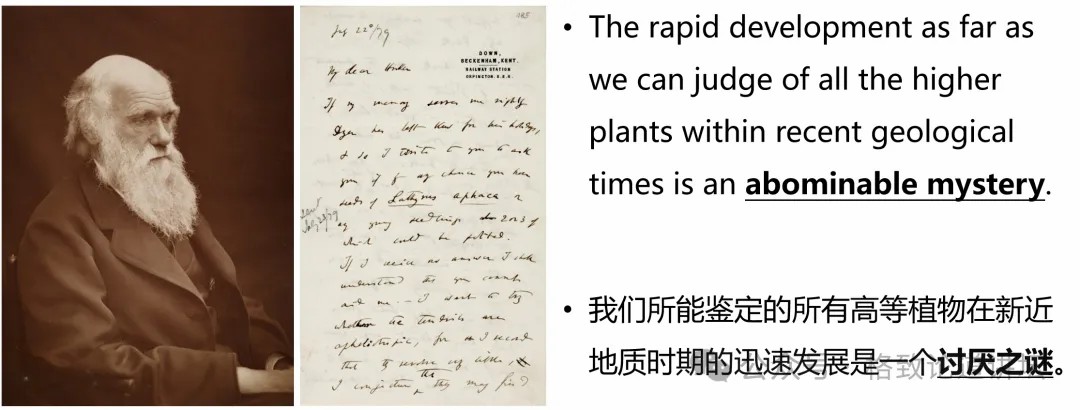 185
July 22d/79
DOWN,
BECKENHAM, KENT.
RAILWAY STATION
ORPINGTON. S.E.R.
My dear
If my memory serves me rightly
Dyer has left Kew for his holidays,
& so I write to you to ask
you if by any chance you have
seeds of Lathyrus aphaca or
any young seedlings 2 or 3 of
which could be potted.
If I receive no answer I shall
understand that you cannot
aid me. — I want to try
whether the tendrils are
apheliotropic, for as I
that they
I conjecture that they may find
• The rapid development as far as
we can judge of all the higher
plants within recent geological
times is an abominable mystery.
• 我们所能鉴定的所有高等植物在新近
地质时期的迅速发展是一个讨厌之谜。
公众号